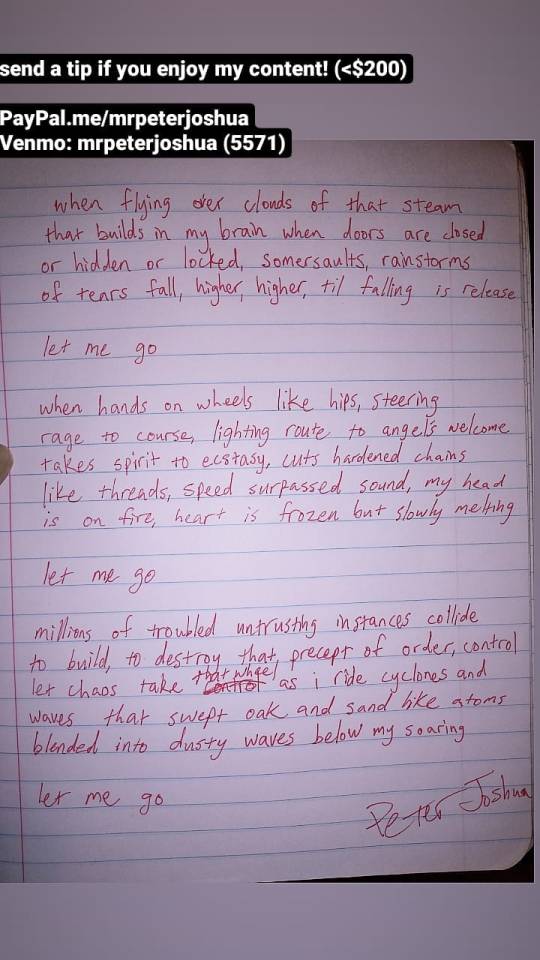 send a tip if you enjoy my content! (<$200)
PayPal.me/mrpeterjoshua
Venmo: mrpeterjoshua (5571)
when flying over clouds of that steam
that builds in my brain when doors are closed
or hidden or locked, somersaults, rainstorms
of tears fall, higher, higher, til falling is release
let me go
when hands on wheels like hips, steering
rage to course, lighting route to angel's welcome
takes spirit to ecstasy, cuts hardened chains
like threads, speed surpassed sound, my head
is on fire, heart is frozen but slowly melting
let me go
millions of troubled untrusting instances collide
to build, to destroy that precept of order, control
let chaos take that wheel as i ride cyclones and
waves that swept oak and sand like atoms
blended into dusty waves below my soaring
let me go
Peter Joshua